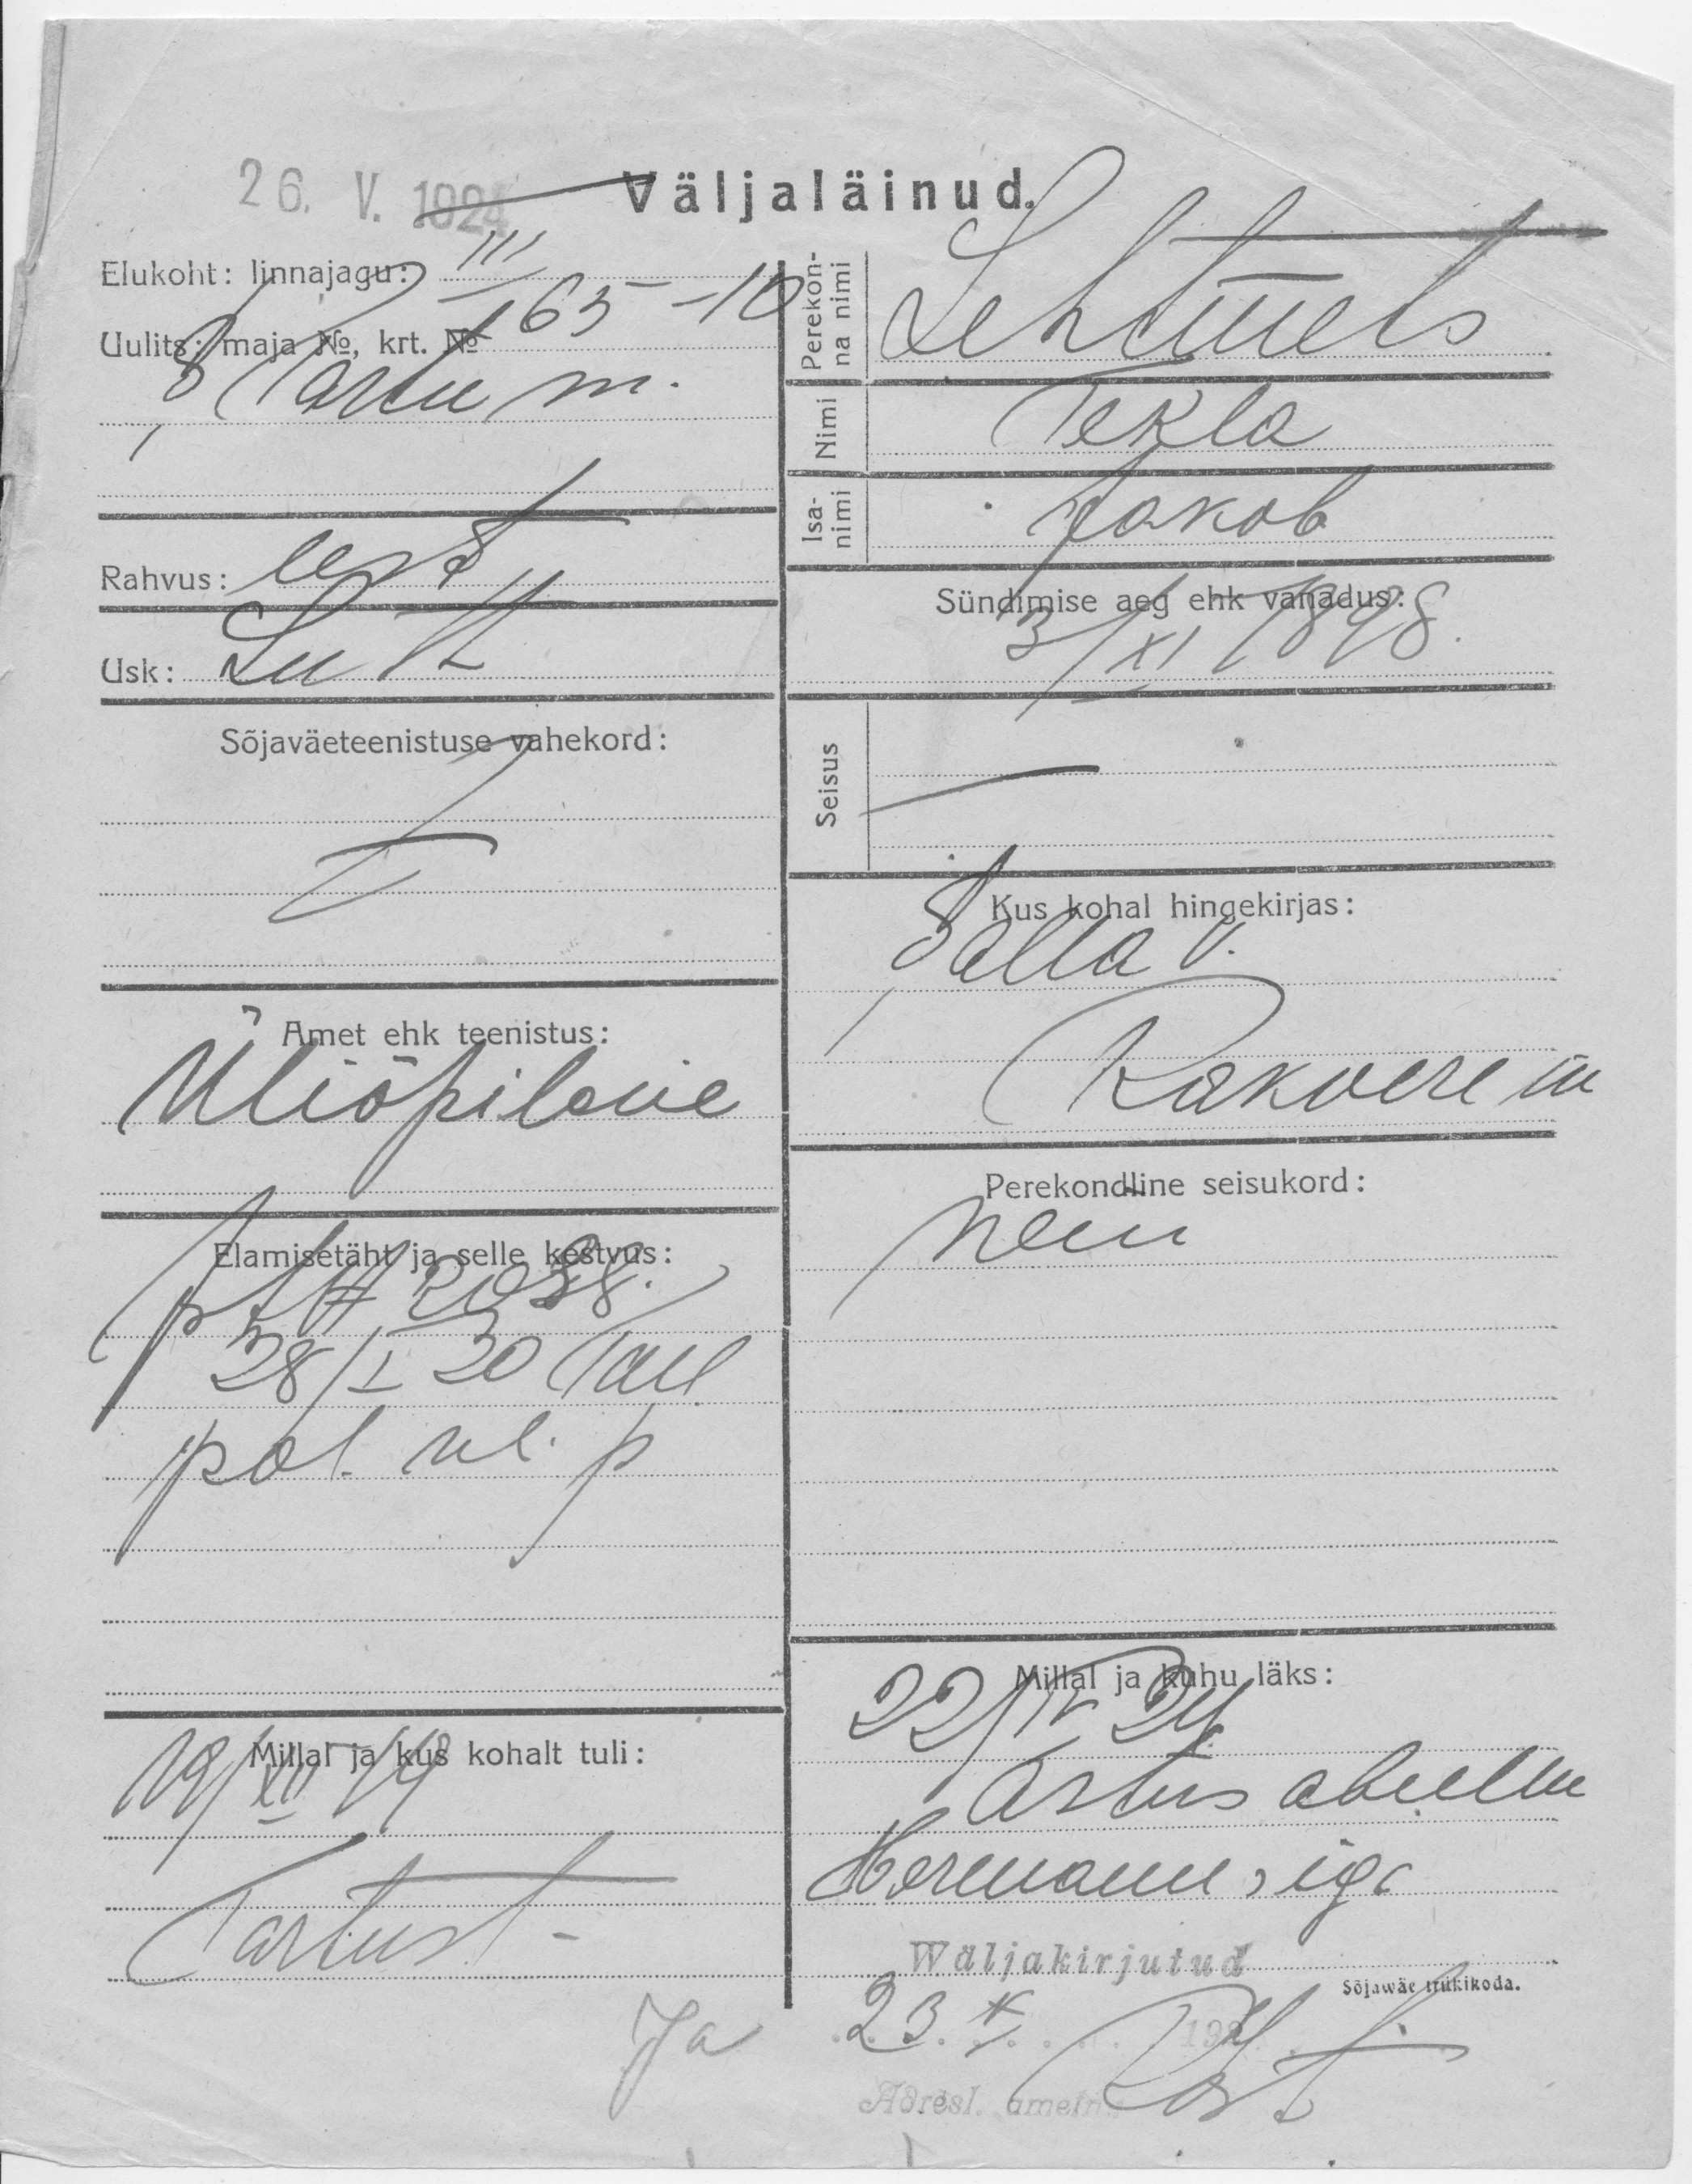 26. V. 1924
Väljaläinud.
Elukoht: linnajagu: III
Uulits: maja №, krt. № 65-10
S. Tartu m.
Rahvus: eest
Usk: Lutt
Sõjaväeteenistuse vahekord:
Amet ehk teenistus:
Üliõpilane
Elamisetäht ja selle kestvus:
28/I 20 Tall
pol. vl. p
Millal ja kus kohalt tuli:
19/XII 19
Tartust
Perekon-
na nimi
Lehtmets
Nimi
Tekla
Isa-
nimi
Jakob
Sündimise aeg ehk vanadus:
3/XI 1898.
Seisus
Kus kohal hingekirjas:
Salla v.
Rakvere m
Perekondline seisukord:
neiu
Millal ja kuhu läks:
22/IV 24
Hermann
Wäljakirjutud
23. V 192
Sõjawäe trükikoda.
Adresl. ametn.
Ja